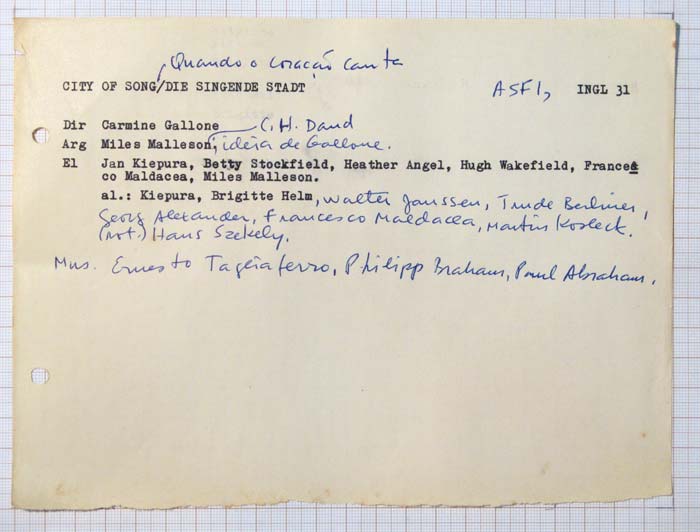 Quando o coração canta
CITY OF SONG/DIE SINGENDE STADT ASFI, INGL 31
Dir Carmine Gallone C. H. Dand
Arg Miles Malleson; idéia de Gallone.
El Jan Kiepura, Betty Stockfield, Heather Angel, Hugh Wakefield, France
co Maldacea, Miles Malleson.
al.: Kiepura, Brigitte Helm, Walter Janssen, Trude Berliner,
Georg Alexander, Francesco Maldacea, Martin Kosleck.
(rot.) Hans Szekely.
Mus. Ernesto Tagliaferro, Philipp Braham, Paul Abraham.